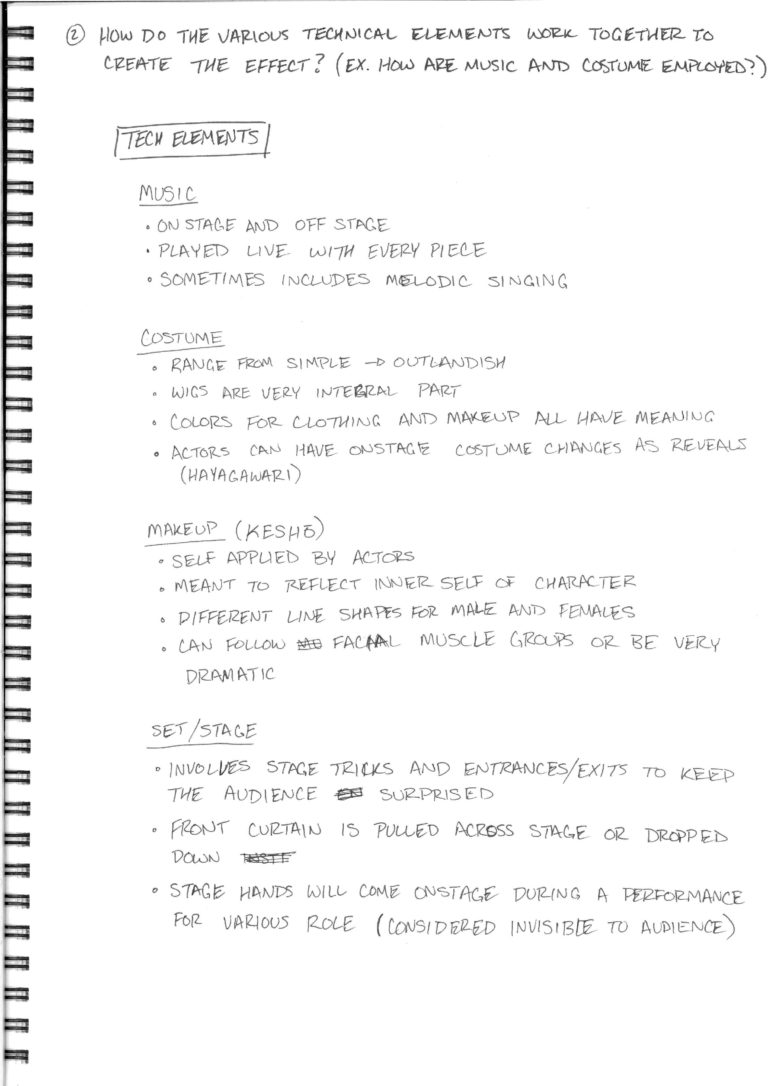 ② HOW DO THE VARIOUS TECHNICAL ELEMENTS WORK TOGETHER TO
CREATE THE EFFECT? (EX. HOW ARE MUSIC AND COSTUME EMPLOYED?)
TECH ELEMENTS
MUSIC
• ON STAGE AND OFF STAGE
• PLAYED LIVE WITH EVERY PIECE
• SOMETIMES INCLUDES MELODIC SINGING
COSTUME
• RANGE FROM SIMPLE → OUTLANDISH
• WIGS ARE VERY INTEGRAL PART
• COLORS FOR CLOTHING AND MAKEUP ALL HAVE MEANING
• ACTORS CAN HAVE ONSTAGE COSTUME CHANGES AS REVEALS
(HAYAGAWARI)
MAKEUP (KESHŌ)
• SELF APPLIED BY ACTORS
• MEANT TO REFLECT INNER SELF OF CHARACTER
• DIFFERENT LINE SHAPES FOR MALE AND FEMALES
• CAN FOLLOW FACIAL MUSCLE GROUPS OR BE VERY
DRAMATIC
SET/STAGE
• INVOLVES STAGE TRICKS AND ENTRANCES/EXITS TO KEEP
THE AUDIENCE SURPRISED
• FRONT CURTAIN IS PULLED ACROSS STAGE OR DROPPED
DOWN
• STAGE HANDS WILL COME ONSTAGE DURING A PERFORMANCE
FOR VARIOUS ROLE (CONSIDERED INVISIBLE TO AUDIENCE)